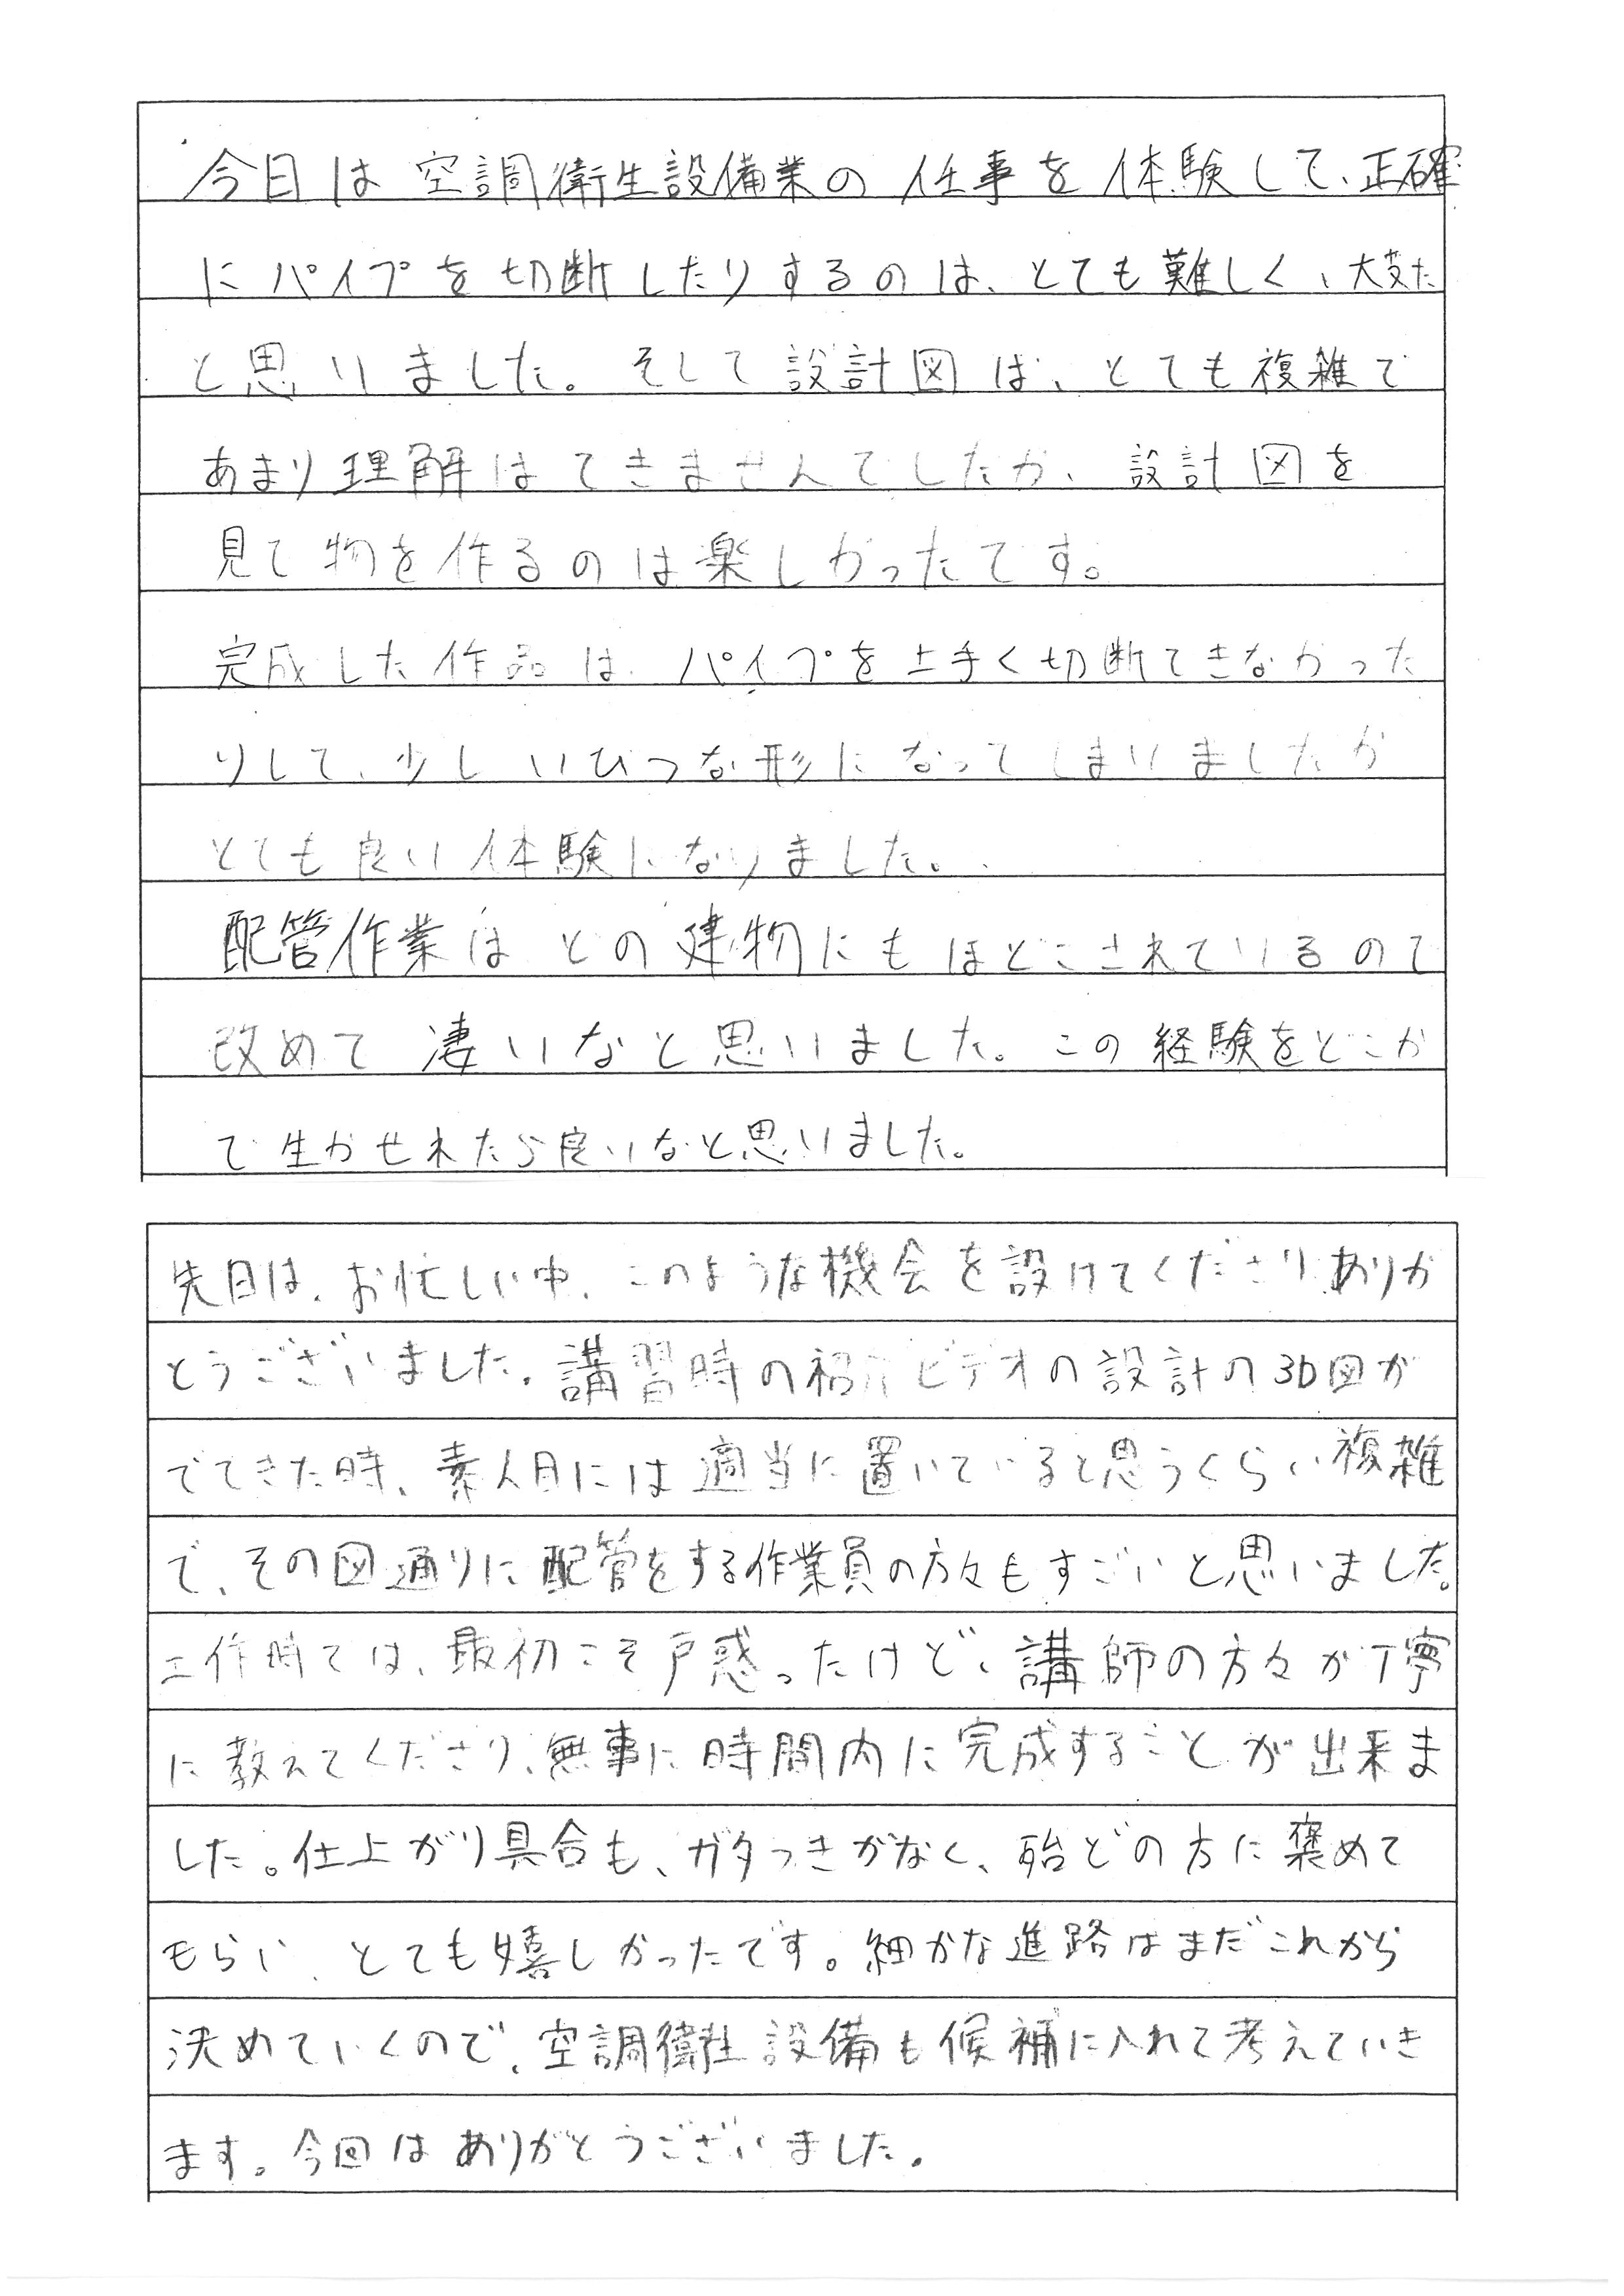 今日は空調衛生設備業の仕事を体験して、正確
にパイプを切断したりするのは、とても難しく、大変だ
と思いました。そして設計図は、とても複雑で
あまり理解はできませんでしたが、設計図を
見て物を作るのは楽しかったです。
完成した作品は、パイプを上手く切断できなかった
りして、少しいびつな形になってしまいましたが
とても良い体験になりました。
配管作業はどの建物にもほどこされているので
改めて凄いなと思いました。この経験をどこか
で生かせれたら良いなと思いました。
先日は、お忙しい中、このような機会を設けてくださりありが
とうございました。講習時の紹介ビデオの設計の3D図が
でてきた時、素人目には適当に置いていると思うくらい複雑
で、その図通りに配管をする作業員の方々もすごいと思いました。
工作時では、最初こそ戸惑ったけど、講師の方々が丁寧
に教えてくださり、無事に時間内に完成することが出来ま
した。仕上がり具合も、ガタつきがなく、殆どの方に褒めて
もらい、とても嬉しかったです。細かな進路はまだこれから
決めていくので、空調衛生設備も候補に入れて考えていき
ます。今回はありがとうございました。